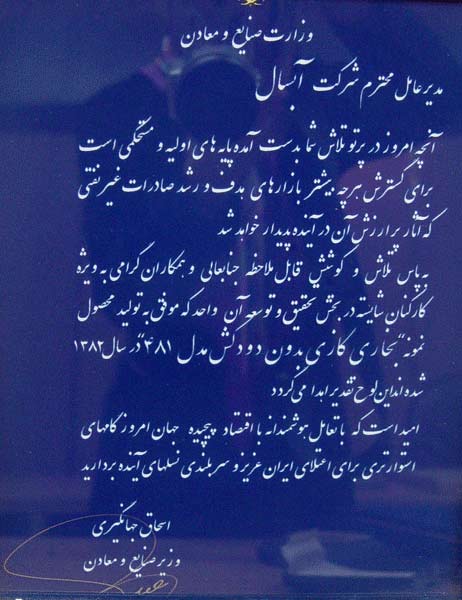 وزارت صنایع و معادن
مدیر عامل محترم شرکت آبسال
آنچه امروز در پرتو تلاش شما بدست آمده پایه های اولیه و مستحکمی است
برای گسترش هرچه بیشتر بازارهای هدف و رشد صادرات غیر نفتی
که آثار پرارزش آن در آینده پدیدار خواهد شد
به پاس تلاش و کوشش قابل ملاحظه جنابعالی و همکاران گرامی به ویژه
کارکنان شایسته در بخش تحقیق و توسعه آن واحد که موفق به تولید محصول
نمونه "بخاری گازی بدون دودکش مدل ۴۸۱" در سال ۱۳۸۲
شده اند این لوح تقدیر اهدا می گردد
امید است که با تعامل هوشمندانه با اقتصاد پیچیده جهان امروز گامهای
استوارتری برای اعتلای ایران عزیز و سربلندی نسلهای آینده بردارید
اسحاق جهانگیری
وزیر صنایع و معادن